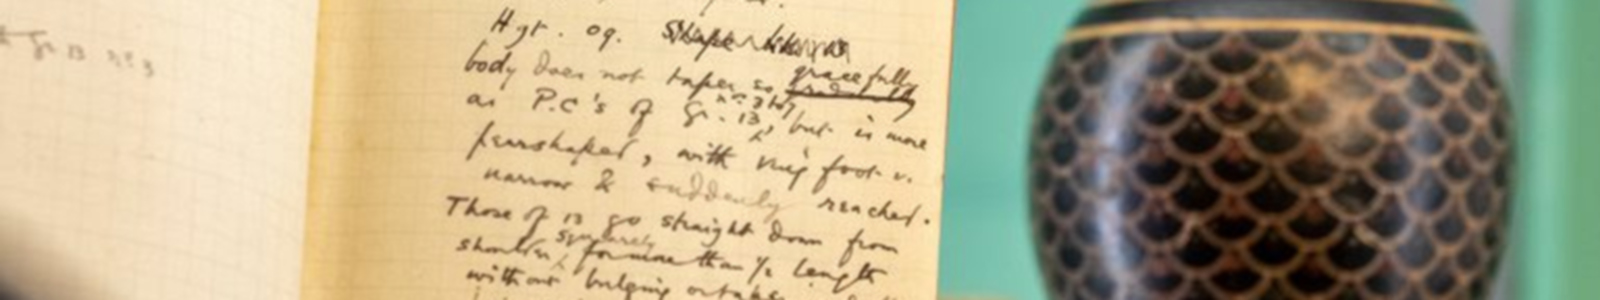 Gr. 13 n: 3
Hgt. 09. Shape
body does not taper so gracefully gradually
as P.C's of Gr. 13, n: 3 but is more
pearshaped, with ring foot v.
narrow & suddenly reached.
Those of 13 go straight down from
shoulder, squarely for more than ½ length
without bulging or taper